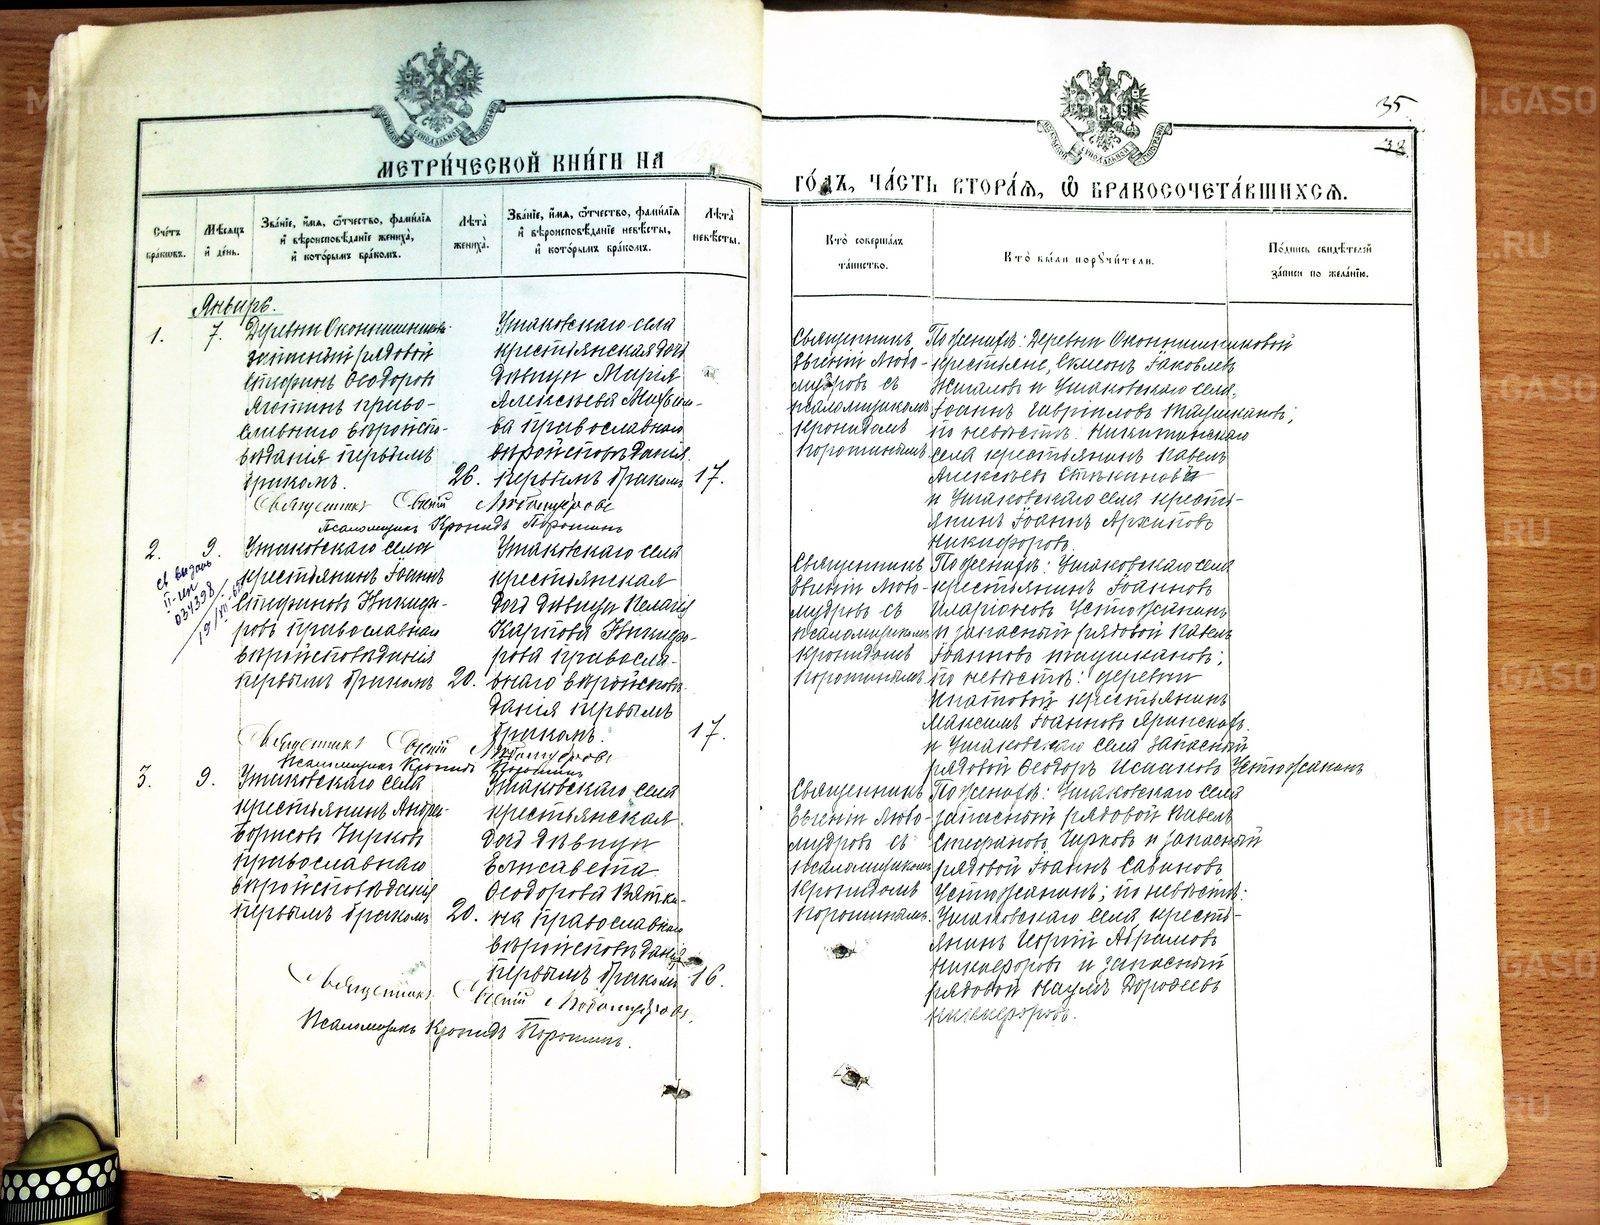 МЕТРИ́ЧЕСКОЙ КНИ́ГИ НА
ГО́ДЪ, ЧА́СТЬ ВТОРА́Я, Ѽ БРАКОСОЧЕТА́ВШИХСЯ.
35
Сче́тъ бра́ковъ.
Мѣ́сяцъ и҆ де́нь.
Зва́нїе, и҆́мя, ѻ҆́тчество, фами́лїя и҆ вѣроисповѣ́данїе жениха̀, и҆ кото́рымъ бра́комъ.
Лѣ́та жениха̀.
Зва́нїе, и҆́мя, ѻ҆́тчество, фами́лїя и҆ вѣроисповѣ́данїе невѣ́сты, и҆ кото́рымъ бра́комъ.
Лѣ́та невѣ́сты.
Кто̀ соверша́лъ та́инство.
Кто̀ бы́ли порꙋчи́тели.
По́дпись свидѣ́телей за́писи по жела́нїю.
Январь.
1.
7.
Деревни
рядовой
Стефанъ Ѳеодоровъ
право-
славнаго вѣроиспо-
вѣданія первымъ
бракомъ.
26.
Ушаковскаго села
крестьянская дочь
дѣвица Марія
Алексѣева
ва православнаго
вѣроисповѣданія
первымъ бракомъ
17.
Священникъ
Евгеній Любо-
мудровъ съ
псаломщикомъ
Кронидомъ
Порошинымъ
По женихѣ: деревни
крестьяне, Симеонъ Іаковлевъ
и Ушаковскаго села,
Іоаннъ Гавриловъ Таушкановъ;
по невѣстѣ: Никитинскаго
села крестьянинъ Павелъ
Алексѣевъ
и Ушаковскаго села кресть-
янинъ Іоаннъ Архиповъ
Никифоровъ
Священникъ Евгеній Любомудровъ
Псаломщикъ Кронидъ Порошинъ
2.
9.
Ушаковскаго села
крестьянинъ Іоаннъ
Стефановъ Никифо-
ровъ православнаго
вѣроисповѣданія
первымъ бракомъ
20.
Ушаковскаго села
крестьянская
дочь дѣвица Пелагія
Карпова Никифо-
рова правосла-
внаго вѣроисповѣ-
данія первымъ
бракомъ.
17.
Священникъ
Евгеній Любо-
мудровъ съ
псаломщикомъ
Кронидомъ
Порошинымъ
По женихѣ: Ушаковскаго села
крестьянинъ Іоаннъ
Иларіоновъ Устюжанинъ
и запасный рядовой Павелъ
Іоанновъ Таушкановъ;
по невѣстѣ: деревни
Ипатовой крестьянинъ
Максимъ Іоанновъ
и Ушаковскаго села запасный
рядовой Ѳеодоръ Устюжанинъ
Священникъ Евгеній Любомудровъ
Псаломщикъ Кронидъ Порошинъ
3.
9.
Ушаковскаго села
крестьянинъ Андрей
Борисовъ Чирковъ
православнаго
вѣроисповѣданія
первымъ бракомъ
20.
Ушаковскаго села
крестьянская
дочь дѣвица
Елисавета
Ѳеодорова Вятки-
на православнаго
вѣроисповѣданія
первымъ бракомъ
16.
Священникъ
Евгеній Любо-
мудровъ съ
псаломщикомъ
Кронидомъ
Порошинымъ.
По женихѣ: Ушаковскаго села
запасный рядовой Павелъ
Стефановъ Чирковъ и запасный
рядовой Іоаннъ Савиновъ
Устюжанинъ; по невѣстѣ:
Ушаковскаго села кресть-
янинъ Георгій Абрамовъ
Никифоровъ и запасный
рядовой Наумъ Дорофеевъ
Никифоровъ.
Священникъ Евгеній Любомудровъ.
Псаломщикъ Кронидъ Порошинъ.